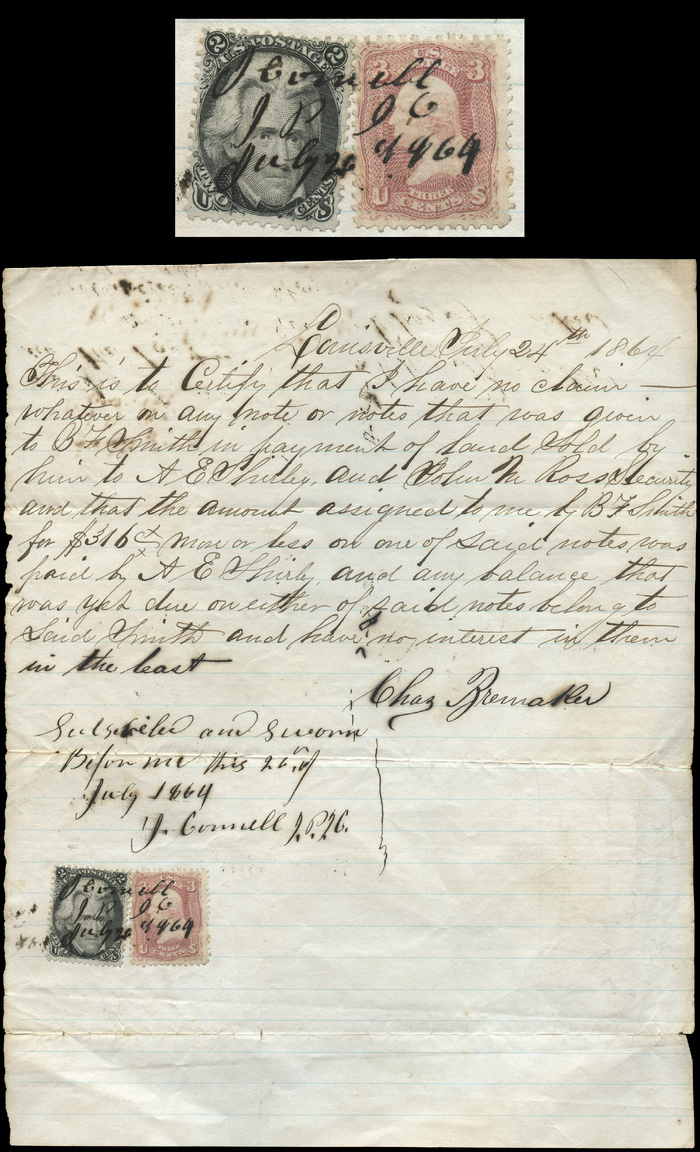 2 U.S. POSTAGE 2
TWO CENTS
U S
3 U.S. 3
POSTAGE
THREE
U CENTS S
J Connell
J P J C
July 26th 1864
Louisville July 24th 1864
This is to Certify that I have no claim —
whatever on any note or notes that was given
to B F Smith in payment of Land Sold by
him to A E Shirley, and John M Ross Security
and that the amount assigned to me by B F Smith
for $316 xx/x more or less on one of said notes, was
paid by A E Shirly, and any balance that
was yet due on either of said notes belong to
Said Smith and have no interest in them
in the least
Chas Bremaker
Subscribed and Sworn
Before me this 26th of
July 1864
J. Connell J.P.J.C.
2 2
TWO CENTS
U S
3 3
THREE
U CENTS S
J Connell
J P J C
July 26th 1864